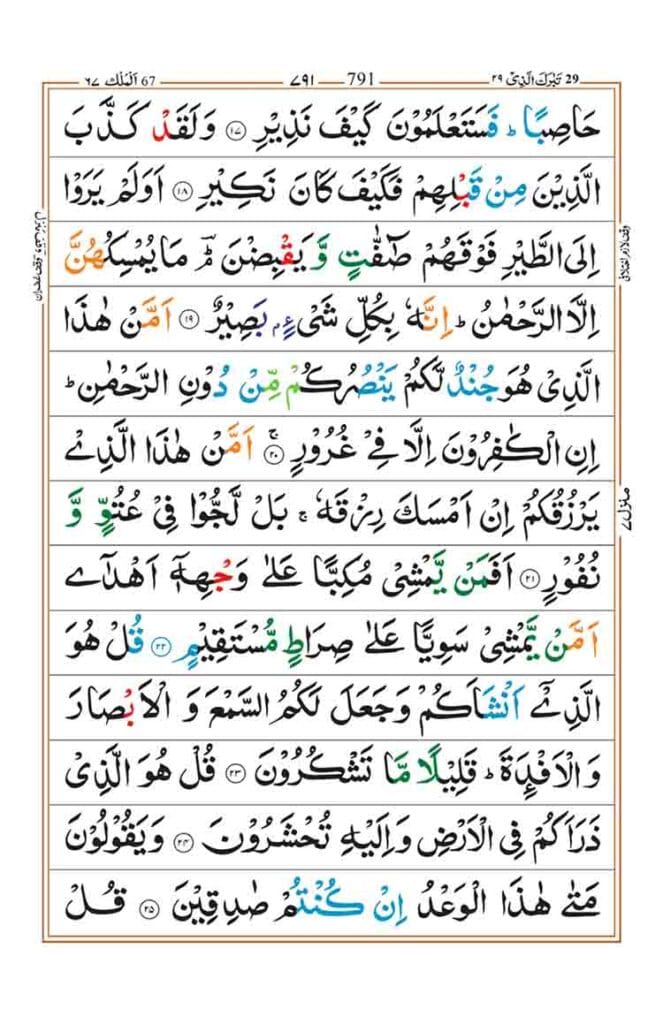 29 تَبٰرَكَ الَّذِیْ ۲۹
791 ۷۹۱
67 اَلْمُلْك ٦٧
حَاصِبًا ؕ فَسَتَعْلَمُوْنَ كَیْفَ نَذِیْرِ ۝۱۷ وَ لَقَدْ كَذَّبَ
الَّذِیْنَ مِنْ قَبْلِهِمْ فَكَیْفَ كَانَ نَكِیْرِ ۝۱۸ اَوَلَمْ یَرَوْا
اِلَی الطَّیْرِ فَوْقَهُمْ صٰٓفّٰتٍ وَّ یَقْبِضْنَ ؔۘ مَا یُمْسِكُهُنَّ
اِلَّا الرَّحْمٰنُ ؕ اِنَّهٗ بِكُلِّ شَیْءٍۭ بَصِیْرٌ ۝۱۹ اَمَّنْ هٰذَا
الَّذِیْ هُوَ جُنْدٌ لَّكُمْ یَنْصُرُكُمْ مِّنْ دُوْنِ الرَّحْمٰنِ ؕ
اِنِ الْكٰفِرُوْنَ اِلَّا فِیْ غُرُوْرٍ ۚ۝۲۰ اَمَّنْ هٰذَا الَّذِیْ
یَرْزُقُكُمْ اِنْ اَمْسَكَ رِزْقَهٗ ۚ بَلْ لَّجُّوْا فِیْ عُتُوٍّ وَّ
نُفُوْرٍ ۝۲۱ اَفَمَنْ یَّمْشِیْ مُكِبًّا عَلٰی وَجْهِهٖۤ اَهْدٰۤی
اَمَّنْ یَّمْشِیْ سَوِیًّا عَلٰی صِرَاطٍ مُّسْتَقِیْمٍ ۝۲۲ قُلْ هُوَ
الَّذِیْۤ اَنْشَاَكُمْ وَ جَعَلَ لَكُمُ السَّمْعَ وَ الْاَبْصَارَ
وَ الْاَفْـِٕدَةَ ؕ قَلِیْلًا مَّا تَشْكُرُوْنَ ۝۲۳ قُلْ هُوَ الَّذِیْ
ذَرَاَكُمْ فِی الْاَرْضِ وَ اِلَیْهِ تُحْشَرُوْنَ ۝۲۴ وَ یَقُوْلُوْنَ
مَتٰی هٰذَا الْوَعْدُ اِنْ كُنْتُمْ صٰدِقِیْنَ ۝۲۵ قُلْ
منزل ۷